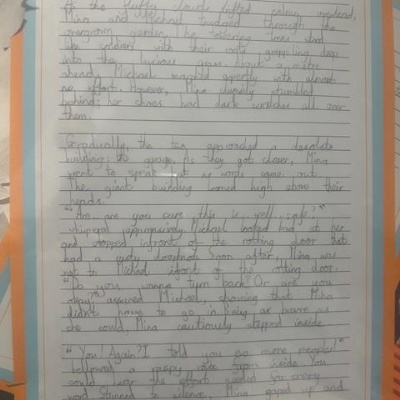 As the fluffy clouds drifted calmly overhead,
Mina and Michael trudged through the
overgrown garden. The towering trees stood
like soldiers with their roots grappling deep
into the luscious grass. About a metre
ahead, Michael marched with almost
no effort. However, Mina clumsily stumbled
behind; her shoes had dark scratches all over
them.
Gradually, the two approached a desolate
building: the garage. As they got closer, Mina
went to speak but no words came out.
The giant building loomed high above their
heads.
"Are you sure this is well safe?"
whispered Michael looked back at her
and stopped infront of the rotting door that
had a rusty doorknob. Soon after, Mina was
next to Michael infront of the rotting door.
"Do you wanna turn back? Or are you
okay?" assured Michael, showing that Mina
didn't have to go in. Being as brave as
she could, Mina cautiously stepped inside.
"You! Again? I told you no more people!"
bellowed a raspy voice from inside. You
could hear the effort needed for every
word. Stunned to silence, Mina gazed up and